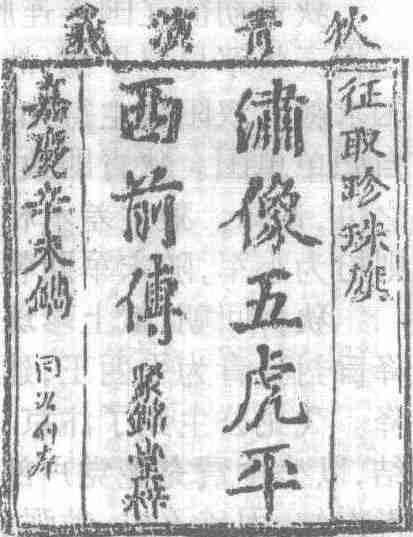 狄青演義
征取珍珠旗
繡像五虎平
西前傳 聚錦堂梓
嘉慶辛未鐫